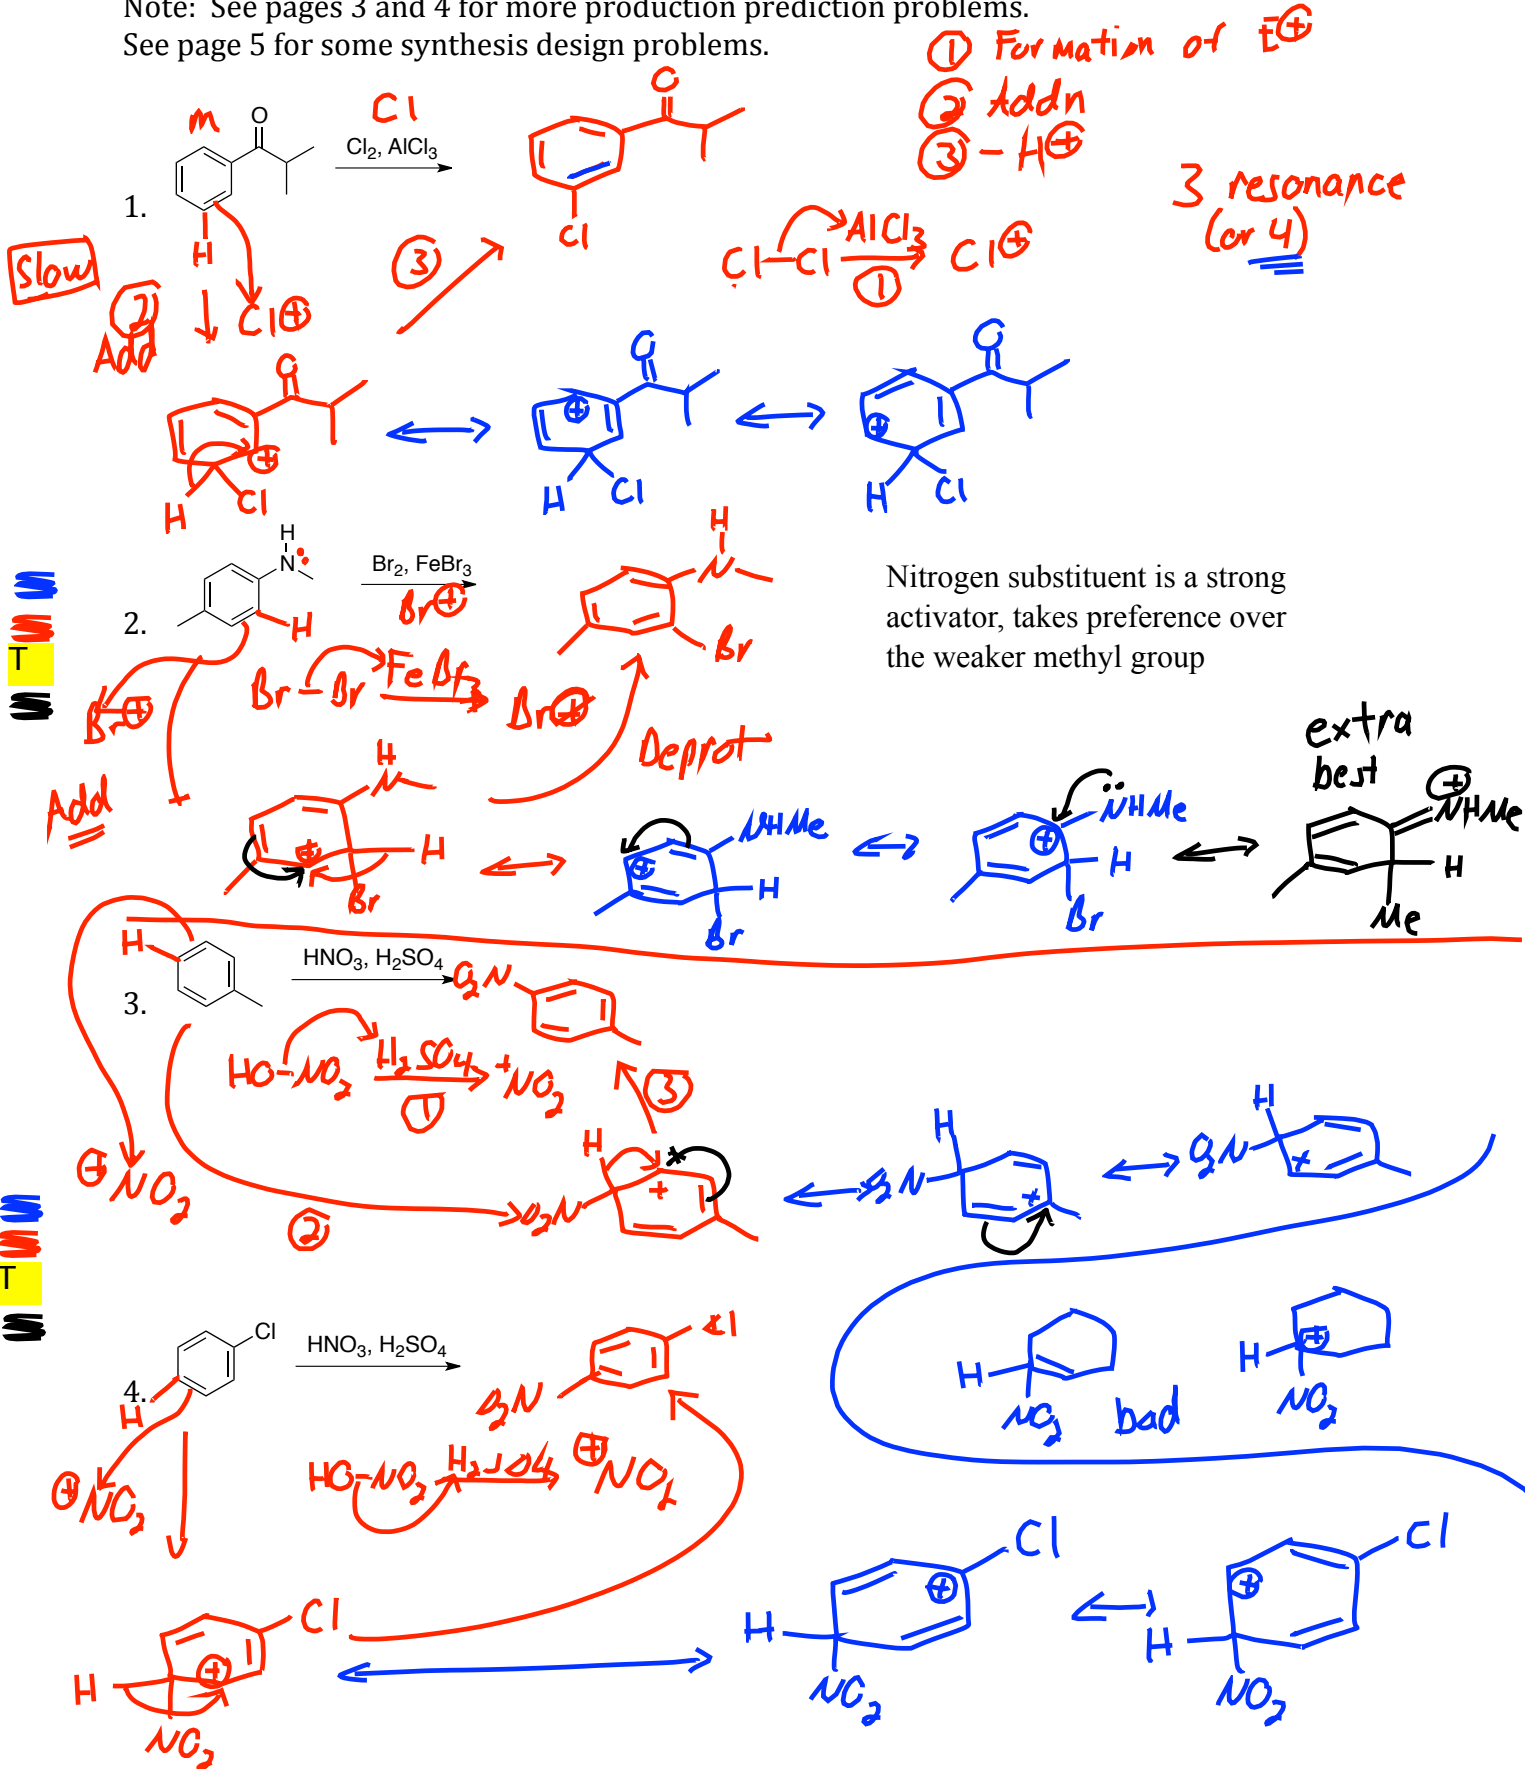 Note: See pages 3 and 4 for more production prediction problems.
See page 5 for some synthesis design problems.
① Formation of E⊕
② Addn
③ - H⊕
3 resonance
(or 4)
m
O
Cl
Cl2, AlCl3
O
Cl
1.
H
Slow
②
Add
Cl⊕
③
Cl-Cl AlCl3 Cl⊕
①
O
⊕
H
Cl
O
⊕
H
Cl
O
⊕
H
Cl
2.
H
N:
H
Br2, FeBr3
Br⊕
H
N
Br
Nitrogen substituent is a strong
activator, takes preference over
the weaker methyl group
T
Br⊕
Br-Br FeBr3 Br⊕
Deprot
Add
H
N
⊕
H
Br
NHMe
⊕
H
Br
NHMe
⊕
H
Br
extra
best
⊕
NHMe
H
Me
3.
H
HNO3, H2SO4
O2N
HO-NO2 H2SO4 +NO2
①
③
⊕NO2
②
H
O2N
+
H
O2N
+
H
O2N
+
T
H
NO2
bad
H
⊕
NO2
4.
Cl
H
HNO3, H2SO4
Cl
O2N
⊕NO2
HO-NO2 H2SO4 ⊕NO2
Cl
H
⊕
NO2
Cl
⊕
H
NO2
Cl
⊕
H
NO2